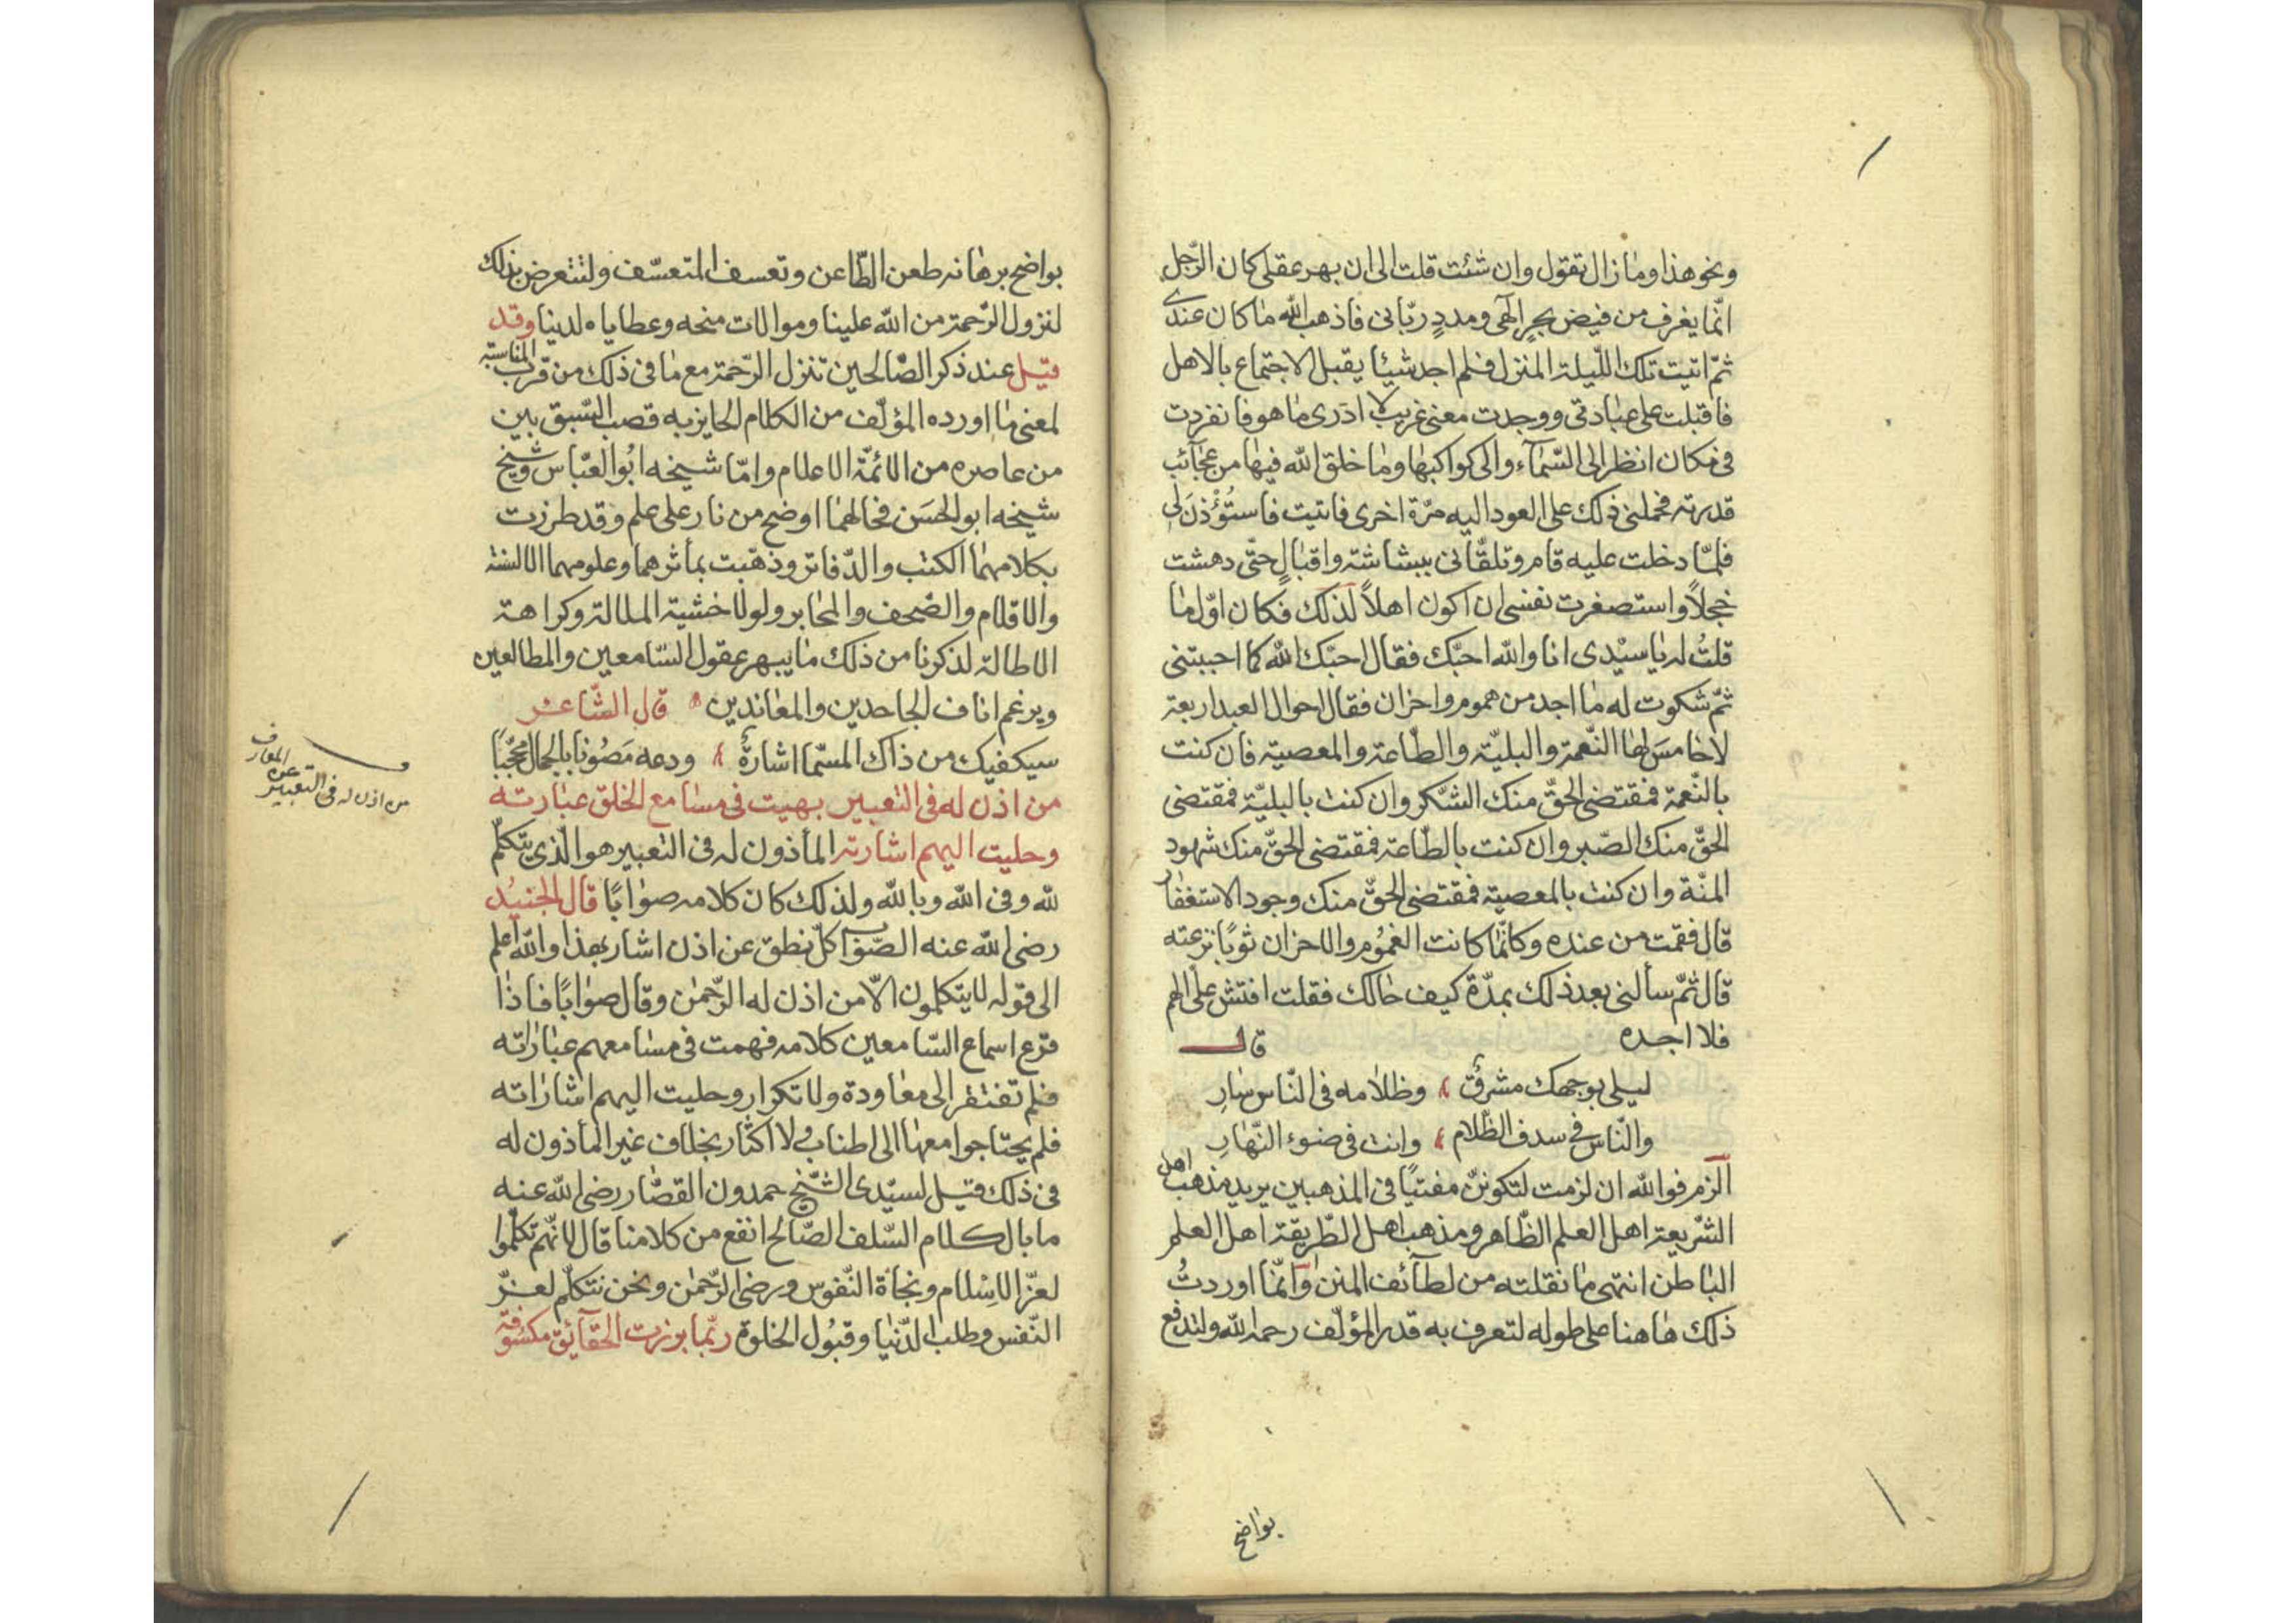 ونحو هذا وما زال تقول وان شئت قلت الى ان بهر عقلى كان الرّجل
انّما يغرف من فيض بحرٍ الٰهى ومددٍ ربّانى فاذهب الله ما كان عندى
ثمّ اتيت تلك اللّيلة المنزل فلم اجد شيئا يقبل الاجتماع بالاهل
فاقبلت على عبادتى ووجدت معنى غريب لا ادرى ما هو فانفردت
فى مكان انظر الى السّمآء والى كواكبها وما خلق الله فيها من عجآئب
قدرته فحملنى ذلك على العود اليه مرّة اخرى فاتيت فاستُؤْذنَ لى
فلمّا دخلت عليه قام وتلقّانى ببشاشة واقبالٍ حتّى دهشت
خجلاً واستصغرت نفسى ان اكون اهلاً لذلك فكان اوّل ما
قلتُ له يا سيّدى انا والله احبّك فقال احبّك الله كما احببتنى
ثمّ شكوت له ما اجد من هموم واحزان فقال احوال العبد اربعة
لا خامسَ لها النّعمة والبليّة والطّاعة والمعصية فان كنت
بالنّعمة فمقتضى الحقّ منك الشّكر وان كنت بالبليّة فمقتضى
الحقّ منك الصّبر وان كنت بالطّاعة فمقتضى الحقّ منك شهود
المنّة وان كنت بالمعصية فمقتضى الحقّ منك وجود الاستغفار
قال فقمت من عنده وكانّما كانت الغمُوم والاحزان ثوبًا نزعته
قال ثمّ سألنى بعد ذلك بمدّة كيف حالك فقلت افتش على الهم
فلا اجده قال
ليلى بوجهك مشرق وظلامه فى النّاس سَارِ
والنّاس فى سدف الظلام وانت فى ضوء النّهارِ
الزم فوالله ان لزمت لتكوننّ مفتيًا فى المذهبين يريد مذهب اهل
الشّريعة اهل العلم الظّاهر ومذهب اهل الطّريقة اهل العلم
الباطن انتهى ما نقلته من لطآئف المنن وانّما اوردتُ
ذلك هاهنا على طوله لتعرف به قدر المؤلّف رحمه الله ولتدفع
بواضح
بواضح برهانه طعن الطّاعن وتعسف المتعسّف ولتتعرض بذلك
لنزول الرّحمة من الله علينا وموالات منحه وعطاياه لدينا وقد
قيل عند ذكر الصّالحين تنزل الرّحمة مع ما فى ذلك من قرب المناسبة
لمعنى ما اورده المؤلّف من الكلام الحايز به قصب السّبق بين
من عاصره من الائمّة الاعلام وامّا شيخه ابُو العبّاس وشيخ
شيخه ابو الحسَن فحالهما اوضح من نار على علم وقد طرزت
بكلامهما الكتب والدّفاتر وذهّبت بمأثرهما وعلومهما الالسنة
والاقلام والصّحف والمحابر ولولا خشية الملالة وكراهة
الاطالة لذكرنا من ذلك ما يبهر عقول السّامعين والمطالعين
ويرغم اناف الجاحدين والمعاندين قال الشّاعر
سيكفيك من ذاك المسمّا اشارةٌ ودعه مَصُونا بالجمال محجّبًا
من اذن له فى التعبير بهيت فى مسامع الخلق عبارته
وحليت اليهم اشارته المأذون له فى التعبير هو الّذى يتكلّم
لله وفى الله وبالله ولذلك كان كلامه صوابًا قال الجنيُد
رضى الله عنه الصّواب كلّ نطق عن اذن اشار بهذا والله اعلم
الى قوله لا يتكلمون الّا من اذن له الرّحمٰن وقال صوابًا فاذا
قرع اسماع السّامعين كلامه فهمت فى مسامعهم عباراته
فلم تفتقر الى معاودة ولا تكرار وحليت اليهم اشاراته
فلم يحتاجوا معها الى اطناب ولا اكثار بخلاف غير المأذون له
فى ذلك قيل لسيّدى الشّيخ حمدون القصّار رضى الله عنه
ما بال كلام السّلف الصّالح انفع من كلامنا قال لانّهم تكلّموا
لعزّ الاِسْلام ونجاة النّفوس ورضى الرّحمٰن ونحن نتكلّم لعزّ
النّفس وطلب الدّنيا وقبُول الخلق ربّما برزت الحقآئق مكسُوفة
من اذن له فى التعبير عن المعارف